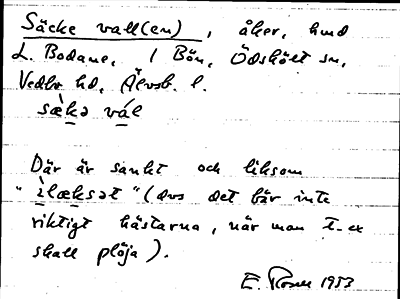 Säcke vall(en), åker, hmd
L. Bodane, 1 Bön, Ödskölt sn,
Vedbo hd, Älvsb. l.
sæ̀kə vál
Där är sankt och liksom
"ìlæksət" (dvs det bär inte
riktigt hästarna, när man t-ex
skall plöja).
E. Rosén 1953